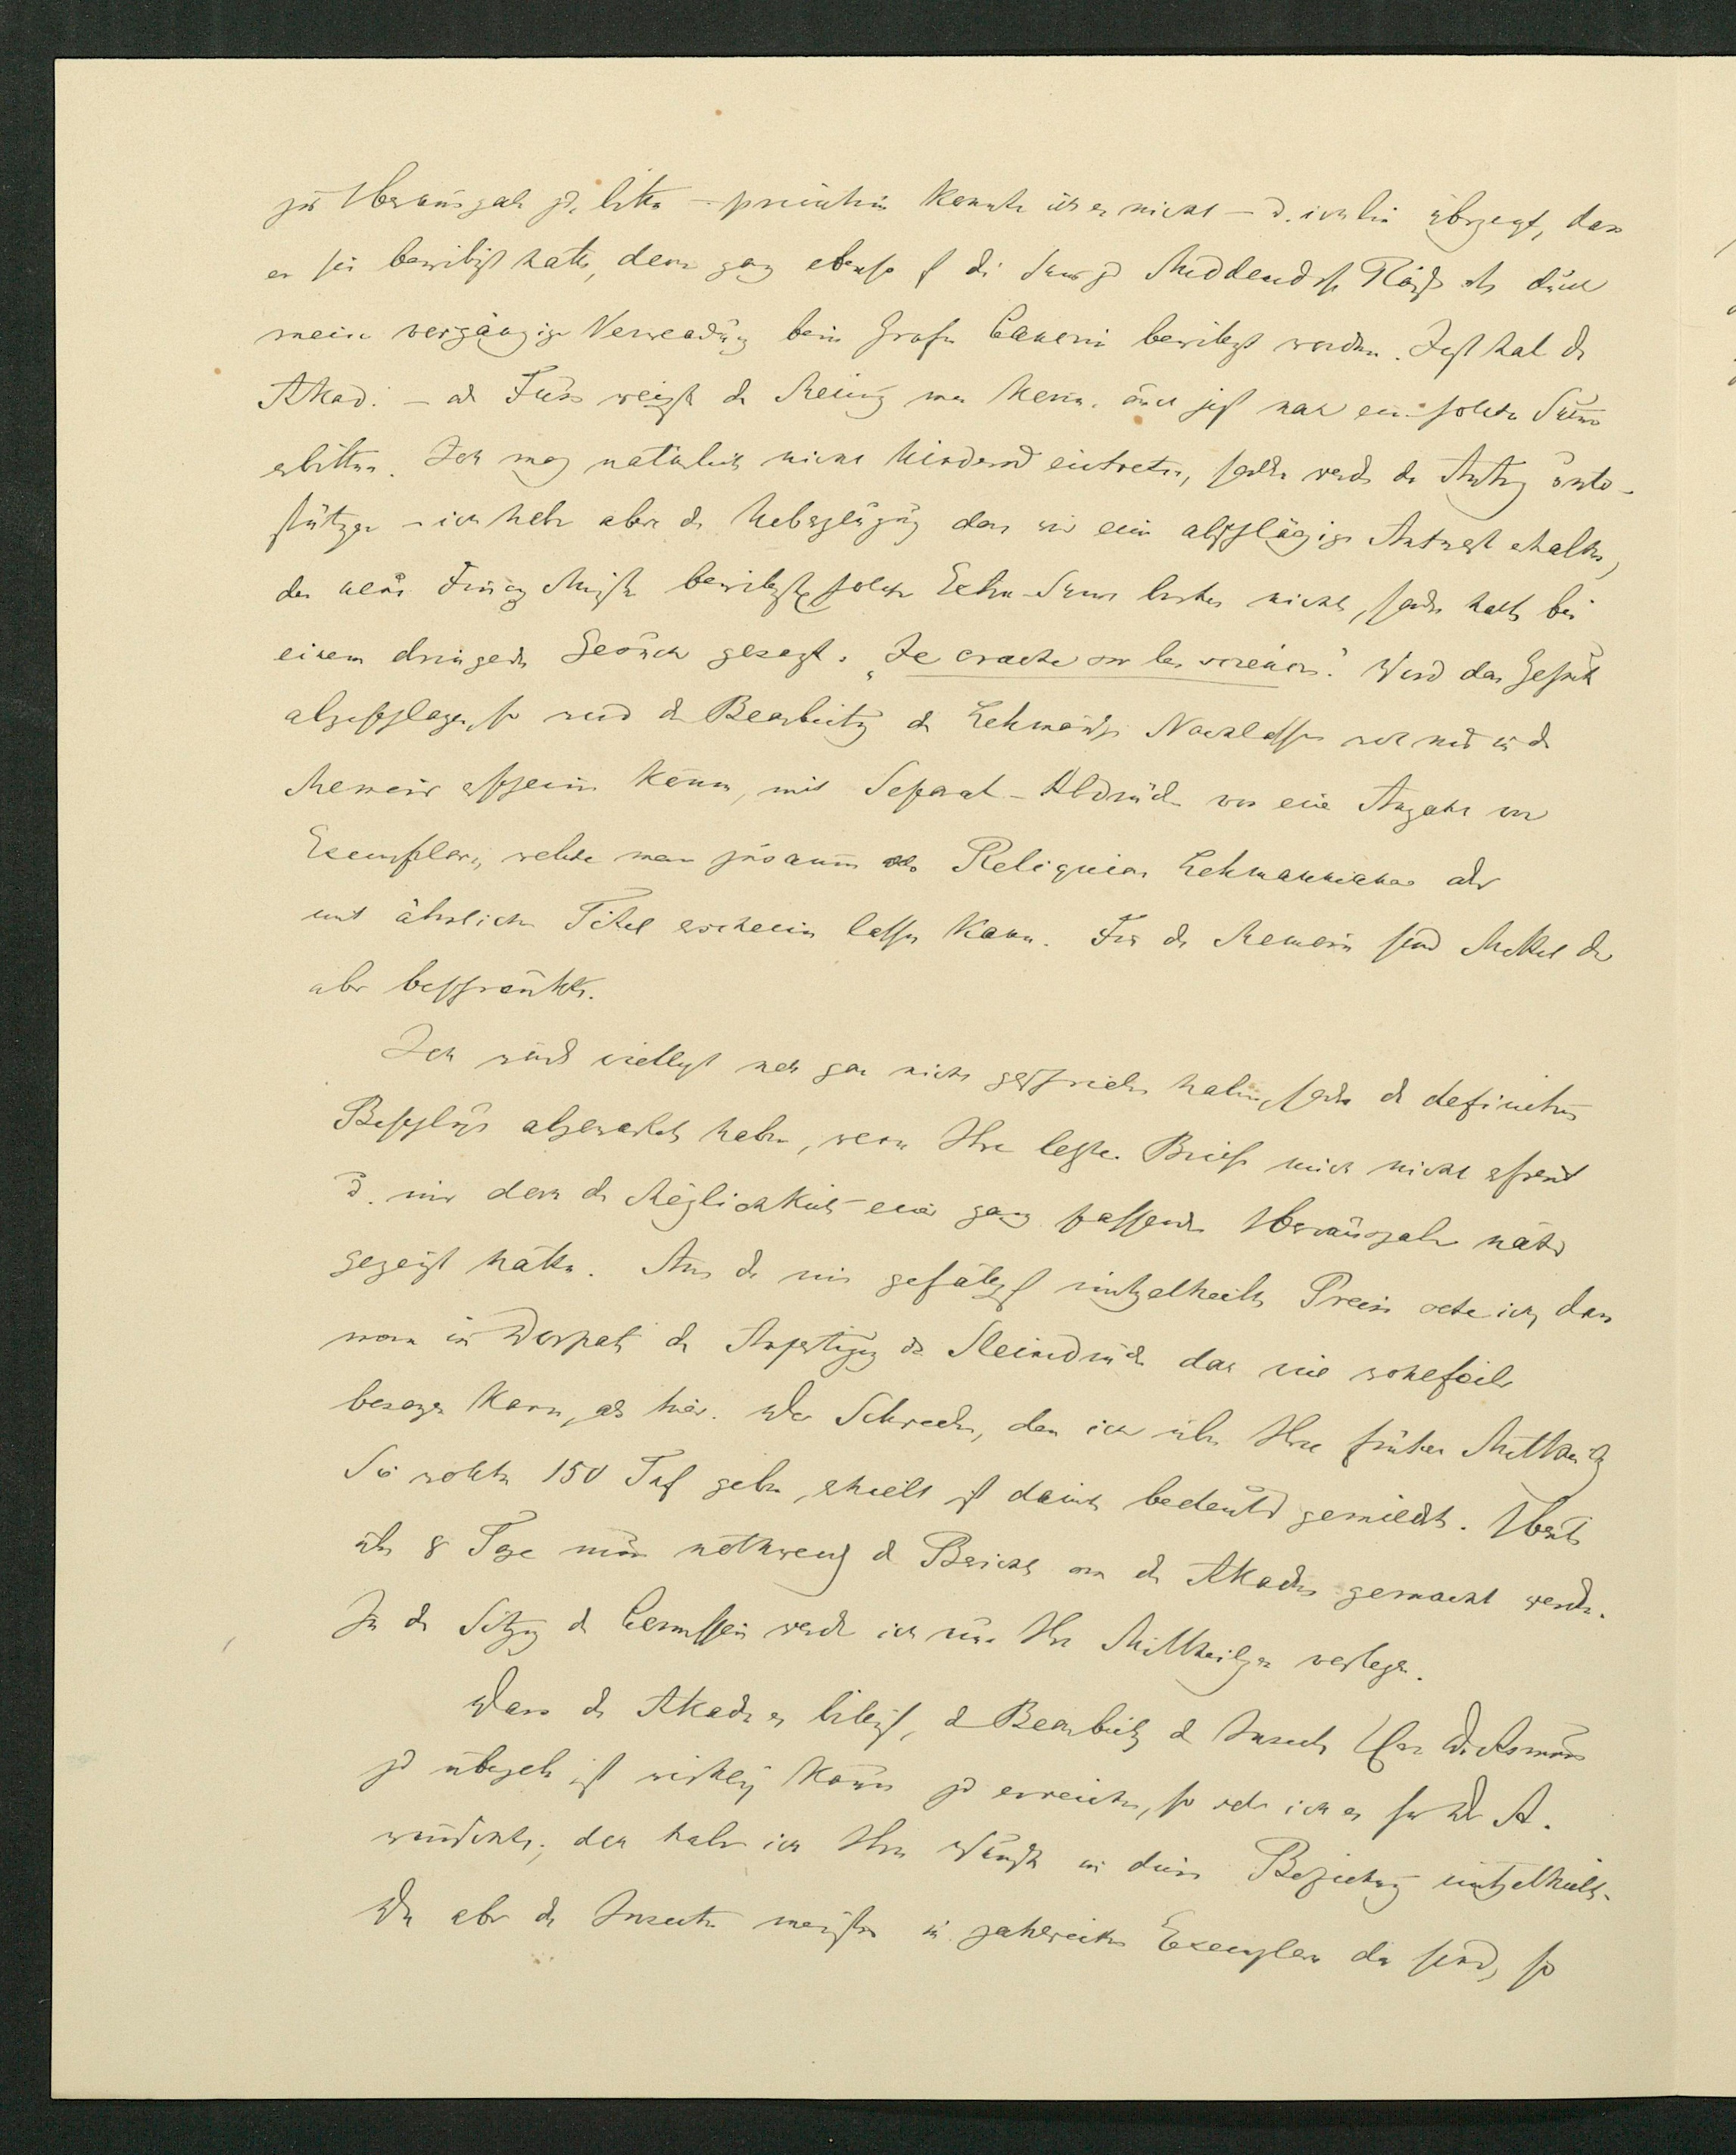 zur Herausgabe zu bitten – privatim konnte ich es nicht – u. ich bin überzeugt, dass
er sie bewilligt hätte, denn ganz ebenso ist die Summe zu Middendorffs Reise durch
meine vorgängige Verwendung beim Grafen Cancrin bewilligt worden. Jetzt hat die
Akad. – Fuss meint die Meinung man könne auch jetzt noch eine solche Summe
erbitten. Ich mag natürlich nicht hindernd eintreten, sondern werde den Antrag unter-
stützen – ich habe aber die Ueberzeugung dass wir eine abschlägige Antwort erhalten,
der neue Finanz Minister bewilligt solche Extra-Summen nicht, sondern hat bei
einem dringenden Gesuch gesagt: „Je crache sur les sciences." Wird das Gesuch
abgeschlagen, so wird die Bearbeitung des Lehmannschen Nachlasses nur in den
Memoiren erscheinen können, mit Separat-Abdrücken von einer Anzahl von
Exemplaren, welche man zusammen als Reliquiae Lehmannianae oder
mit ähnlichem Titel erscheinen lassen kann. Für die Memoiren sind die Mittel
aber beschränkter.
Ich würde vielleicht noch gar nicht geschrieben haben, sondern den definitiven
Beschluss abgewartet haben, wenn Ihre letzten Briefe mich nicht erfreut
u. mir die Möglichkeit einer ganz passenden Herausgabe näher
gezeigt hätten. Aus den mir gefälligst mitgetheilten Preisen sehe ich, dass
man in Dorpat die Anfertigung der Steindrücke viel wohlfeiler
besorgen kann, als hier. Der Schrecken, den ich über Ihre frühere Mittheilung
Sie wollten 150 Taf. geben, erhielt ist damit bedeutend gemildert. Heute
über 8 Tage muss nothwendig der Bericht an die Akademie gemacht werden.
In der Sitzung der Commission werde ich nun Ihre Mittheilungen vorlegen.
Dass die Akademie es billigt, die Bearbeitung der Insecten Herrn Dr. Asmuss
zu übergeben ist wirklich kaum zu erreichen, so sehr ich es für Dr A.
wünschte; doch habe ich Ihre Wünsche in dieser Beziehung mitgetheilt.
Da aber die Insecten meistens in zahlreichen Exemplaren da sind, so